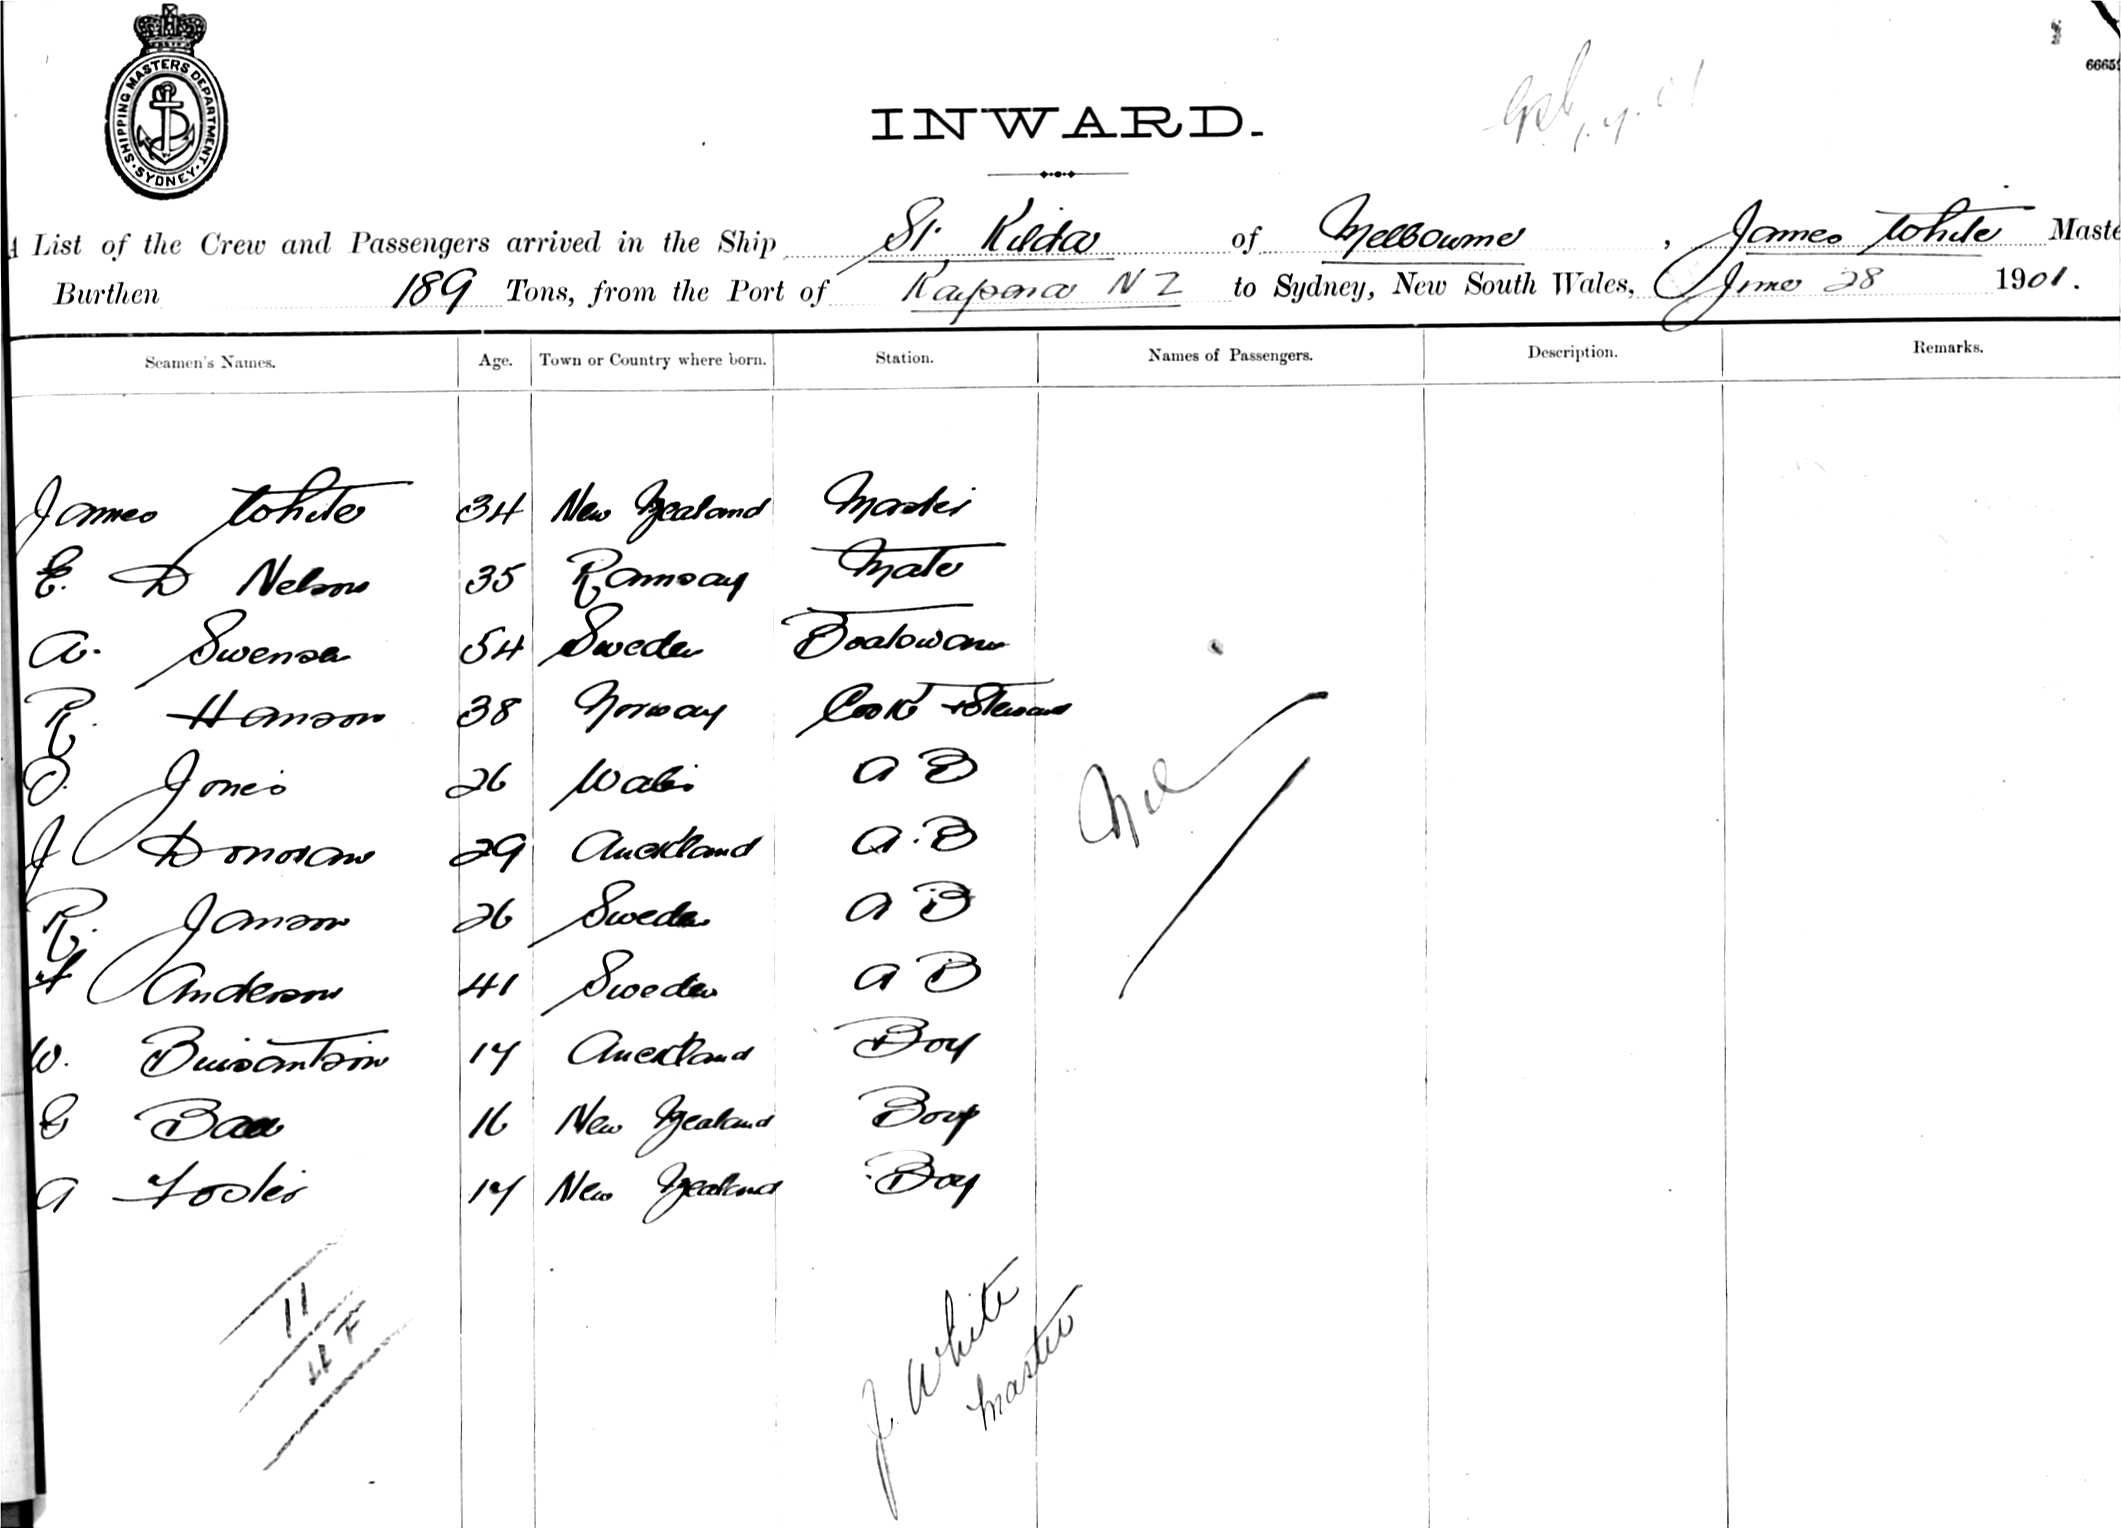 SHIPPING MASTERS DEPARTMENT. SYDNEY.
6665
INWARD.
List of the Crew and Passengers arrived in the Ship St. Kilda of Melbourne, James White Maste
Burthen 189 Tons, from the Port of Kaipara N Z to Sydney, New South Wales, June 28 1901.
Seamen's Names. Age. Town or Country where born. Station. Names of Passengers. Description. Remarks.
James White 34 New Zealand Master
E. D Nelson 35 Ramsay Mate
A. Swensen 54 Sweden Boatswain
R. Hanson 38 Norway Cook + Steward
D. Jones 26 Wales A B
Nil
J Donovan 29 Auckland A. B
R. Janson 26 Sweden A B
Anderson 41 Sweden A B
W. 17 Auckland Boy
E 16 New Zealand Boy
A Foster 17 New Zealand Boy
11
J. White
Master